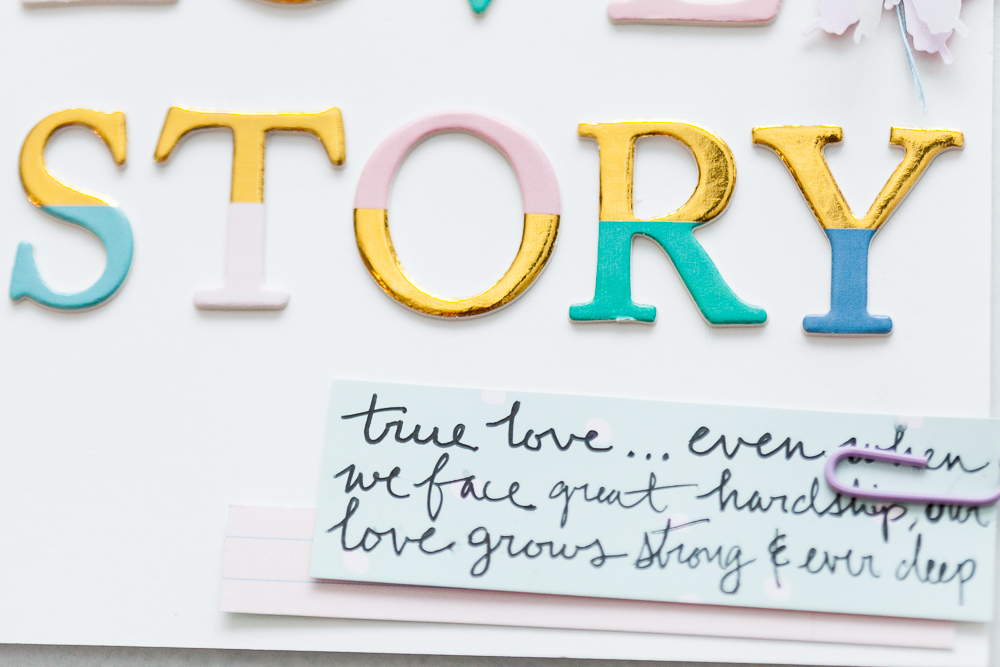 STORY
true love... even when
we face great hardship, our
love grows strong & ever deep